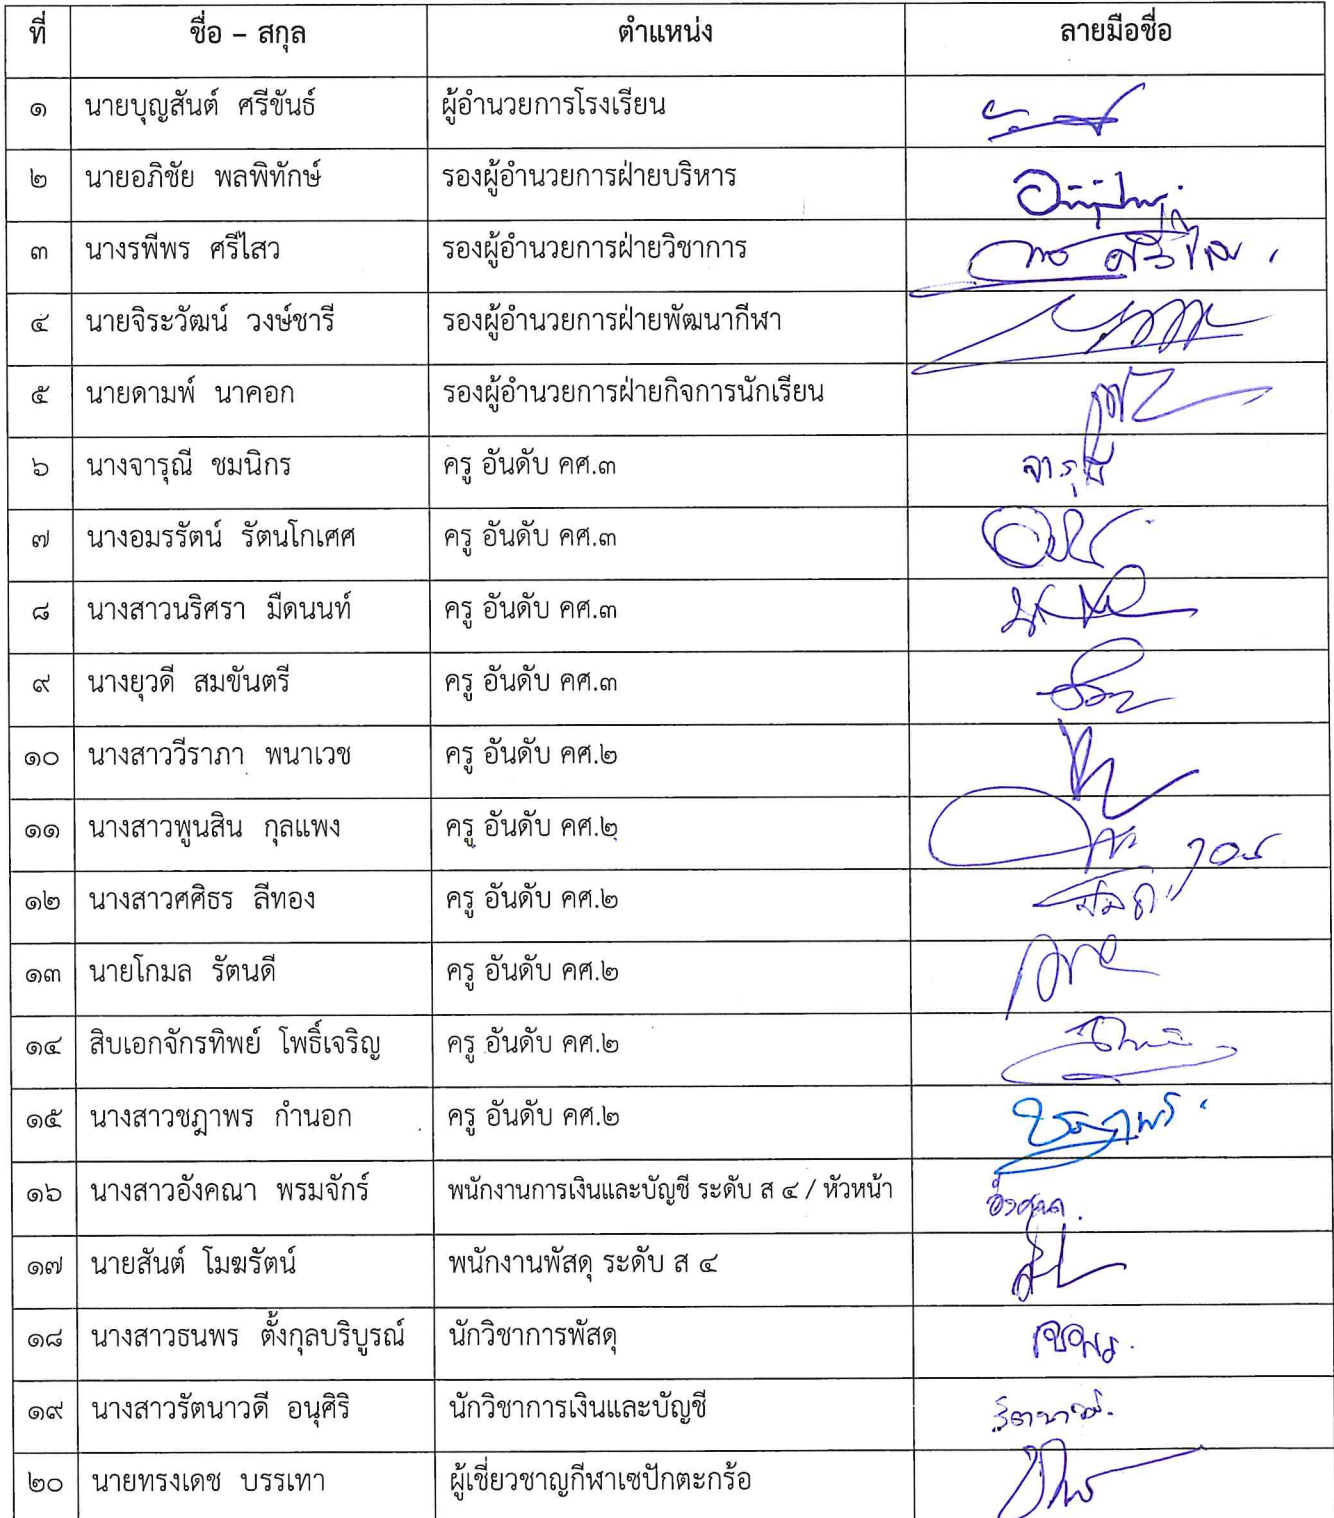 ที่ ชื่อ – สกุล ตำแหน่ง ลายมือชื่อ
๑ นายบุญสันต์ ศรีขันธ์ ผู้อำนวยการโรงเรียน
๒ นายอภิชัย พลพิทักษ์ รองผู้อำนวยการฝ่ายบริหาร
๓ นางรพีพร ศรีไสว รองผู้อำนวยการฝ่ายวิชาการ
๔ นายจิระวัฒน์ วงษ์ชารี รองผู้อำนวยการฝ่ายพัฒนากีฬา
๕ นายดามพ์ นาคอก รองผู้อำนวยการฝ่ายกิจการนักเรียน
๖ นางจารุณี ชมนิกร ครู อันดับ คศ.๓ จารุณี
๗ นางอมรรัตน์ รัตนโกเศศ ครู อันดับ คศ.๓
๘ นางสาวนริศรา มืดนนท์ ครู อันดับ คศ.๓
๙ นางยุวดี สมขันตรี ครู อันดับ คศ.๓
๑๐ นางสาววีราภา พนาเวช ครู อันดับ คศ.๒
๑๑ นางสาวพูนสิน กุลแพง ครู อันดับ คศ.๒
๑๒ นางสาวศศิธร ลีทอง ครู อันดับ คศ.๒
๑๓ นายโกมล รัตนดี ครู อันดับ คศ.๒
๑๔ สิบเอกจักรทิพย์ โพธิ์เจริญ ครู อันดับ คศ.๒
๑๕ นางสาวชฎาพร กำนอก ครู อันดับ คศ.๒ ชฎาพร
๑๖ นางสาวอังคณา พรมจักร์ พนักงานการเงินและบัญชี ระดับ ส ๔ / หัวหน้า อังคณา
๑๗ นายสันต์ โมฆรัตน์ พนักงานพัสดุ ระดับ ส ๔
๑๘ นางสาวธนพร ตั้งกุลบริบูรณ์ นักวิชาการพัสดุ
๑๙ นางสาวรัตนาวดี อนุศิริ นักวิชาการเงินและบัญชี รัตนาวดี
๒๐ นายทรงเดช บรรเทา ผู้เชี่ยวชาญกีฬาเซปักตะกร้อ